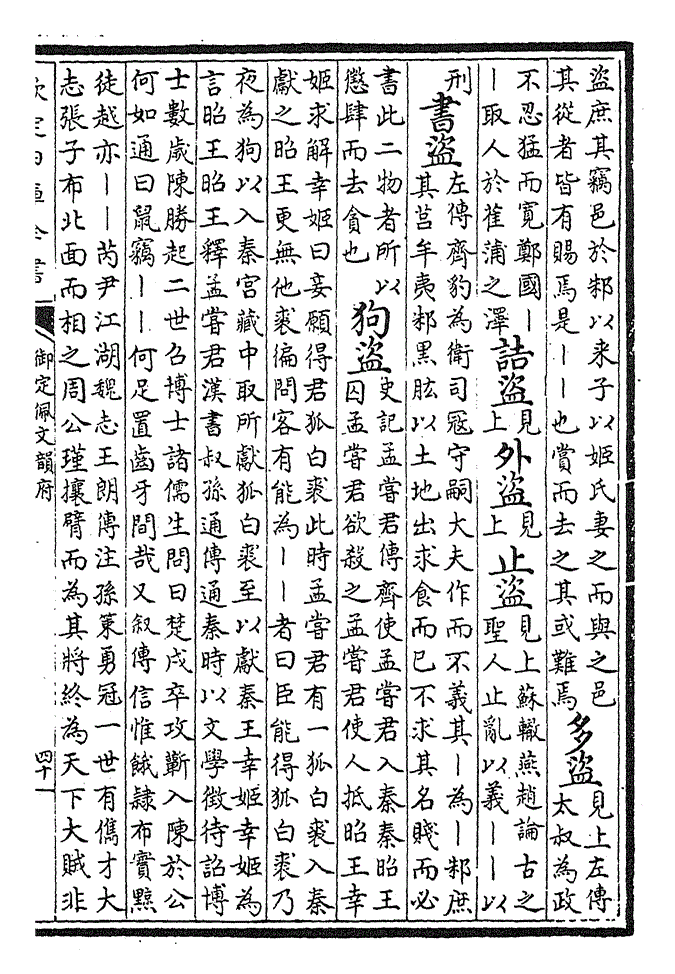 盜庶其竊邑於邾以来子以姬氏妻之而與之邑
其從者皆有賜焉是丨丨也賞而去之其或難焉
多盜
見上左傳
太叔為政
不忍猛而寛鄭國丨
丨取人於萑蒲之澤
詰盜
見
上
外盜
見
上
止盜
見上蘇轍燕趙論古之
聖人止亂以義丨丨以
刑
書盜
左傳齊豹為衛司寇守嗣大夫作而不義其丨為丨邾庶
其莒牟夷邾黒肱以土地出求食而已不求其名賤而必
書此二物者所以
懲肆而去貪也
狗盜
史記孟嘗君傳齊使孟嘗君入秦秦昭王
囚孟嘗君欲殺之孟嘗君使人抵昭王幸
姬求解幸姬曰妾願得君狐白裘此時孟嘗君有一狐白裘入秦
獻之昭王更無他裘徧問客有能為丨丨者曰臣能得狐白裘乃
夜為狗以入秦宫藏中取所獻狐白裘至以獻秦王幸姬幸姬為
言昭王昭王釋孟嘗君漢書叔孫通傳通秦時以文學徵待詔博
士數歳陳勝起二世召博士諸儒生問曰楚戍卒攻蘄入陳於公
何如通曰鼠竊丨丨何足置齒牙間哉又叙傳信惟餓隸布實黥
徒越亦丨丨芮尹江湖魏志王朗傳注孫策勇冠一世有儁才大
志張子布北面而相之周公瑾攘臂而為其將終為天下大賊非
欽定四庫全書
御定佩文韻府
四十一